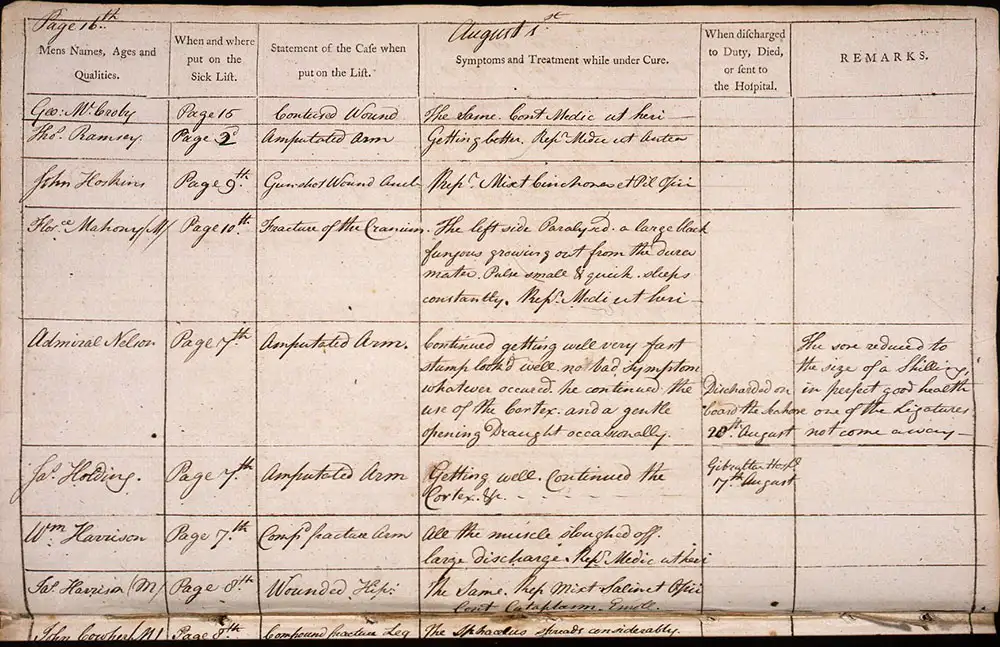 Page 16th
August 1st
Mens Names, Ages and Qualities.
When and where put on the Sick List.
Statement of the Case when put on the List.
Symptoms and Treatment while under Cure.
When discharged to Duty, Died, or sent to the Hospital.
REMARKS.
Geo: McCroby Page 15 Contused Wound The Same. Cont Medic ut heri
Thos. Ramsey Page 2d Amputated Arm Getting better. Repr Medic ut Antea
John Hoskins Page 9th Gun shot Wound Repr. Mixt Cinchonae et Pil Opii
Mahony (M) Page 10th Fracture of the Cranium. The left side Paralysed. a large black
fungous growing out from the dura
mater. Pulse small & quick. sleeps
constantly. Repr. Medic ut heri
Admiral Nelson Page 7th Amputated Arm.
Continued getting well very fast
stump look'd well no bad symptom
whatever occured. he continued the
use of the Cortex. and a gentle
opening Draught occasionally.
Discharded on
board the Seahorse
20th. August
The sore reduced to
the size of a Shilling,
in perfect good health
one of the Ligatures
not come away
Jas. Holding. Page 7th Amputated Arm
Getting well. Continued the
Cortex. &c.
Gibralter Hospl
17th August
Wm Harrison Page 7th Compd fracture Arm
All the muscle sloughed off.
large discharge. Repr. Medic ut heri
Jas. Harrison (M) Page 8th Wounded Hip:
The Same. Rep Mixt Salin et Opii
Cont Cataplasm. Emoll.
John Cowper (M) Page 8th Compound fracture Leg The Sphacelus spreads considerably.